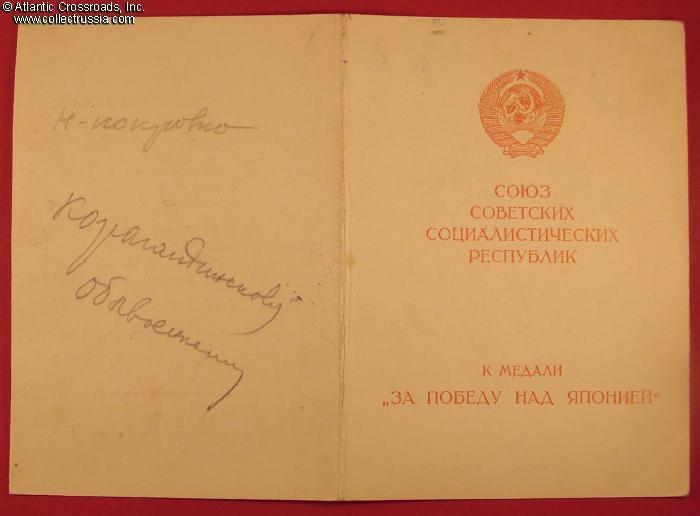 © Atlantic Crossroads, Inc.
www.collectrussia.com
Н-покровка
Карагандинскому
СОЮЗ
СОВЕТСКИХ
СОЦИАЛИСТИЧЕСКИХ
РЕСПУБЛИК
К МЕДАЛИ
„ЗА ПОБЕДУ НАД ЯПОНИЕЙ“